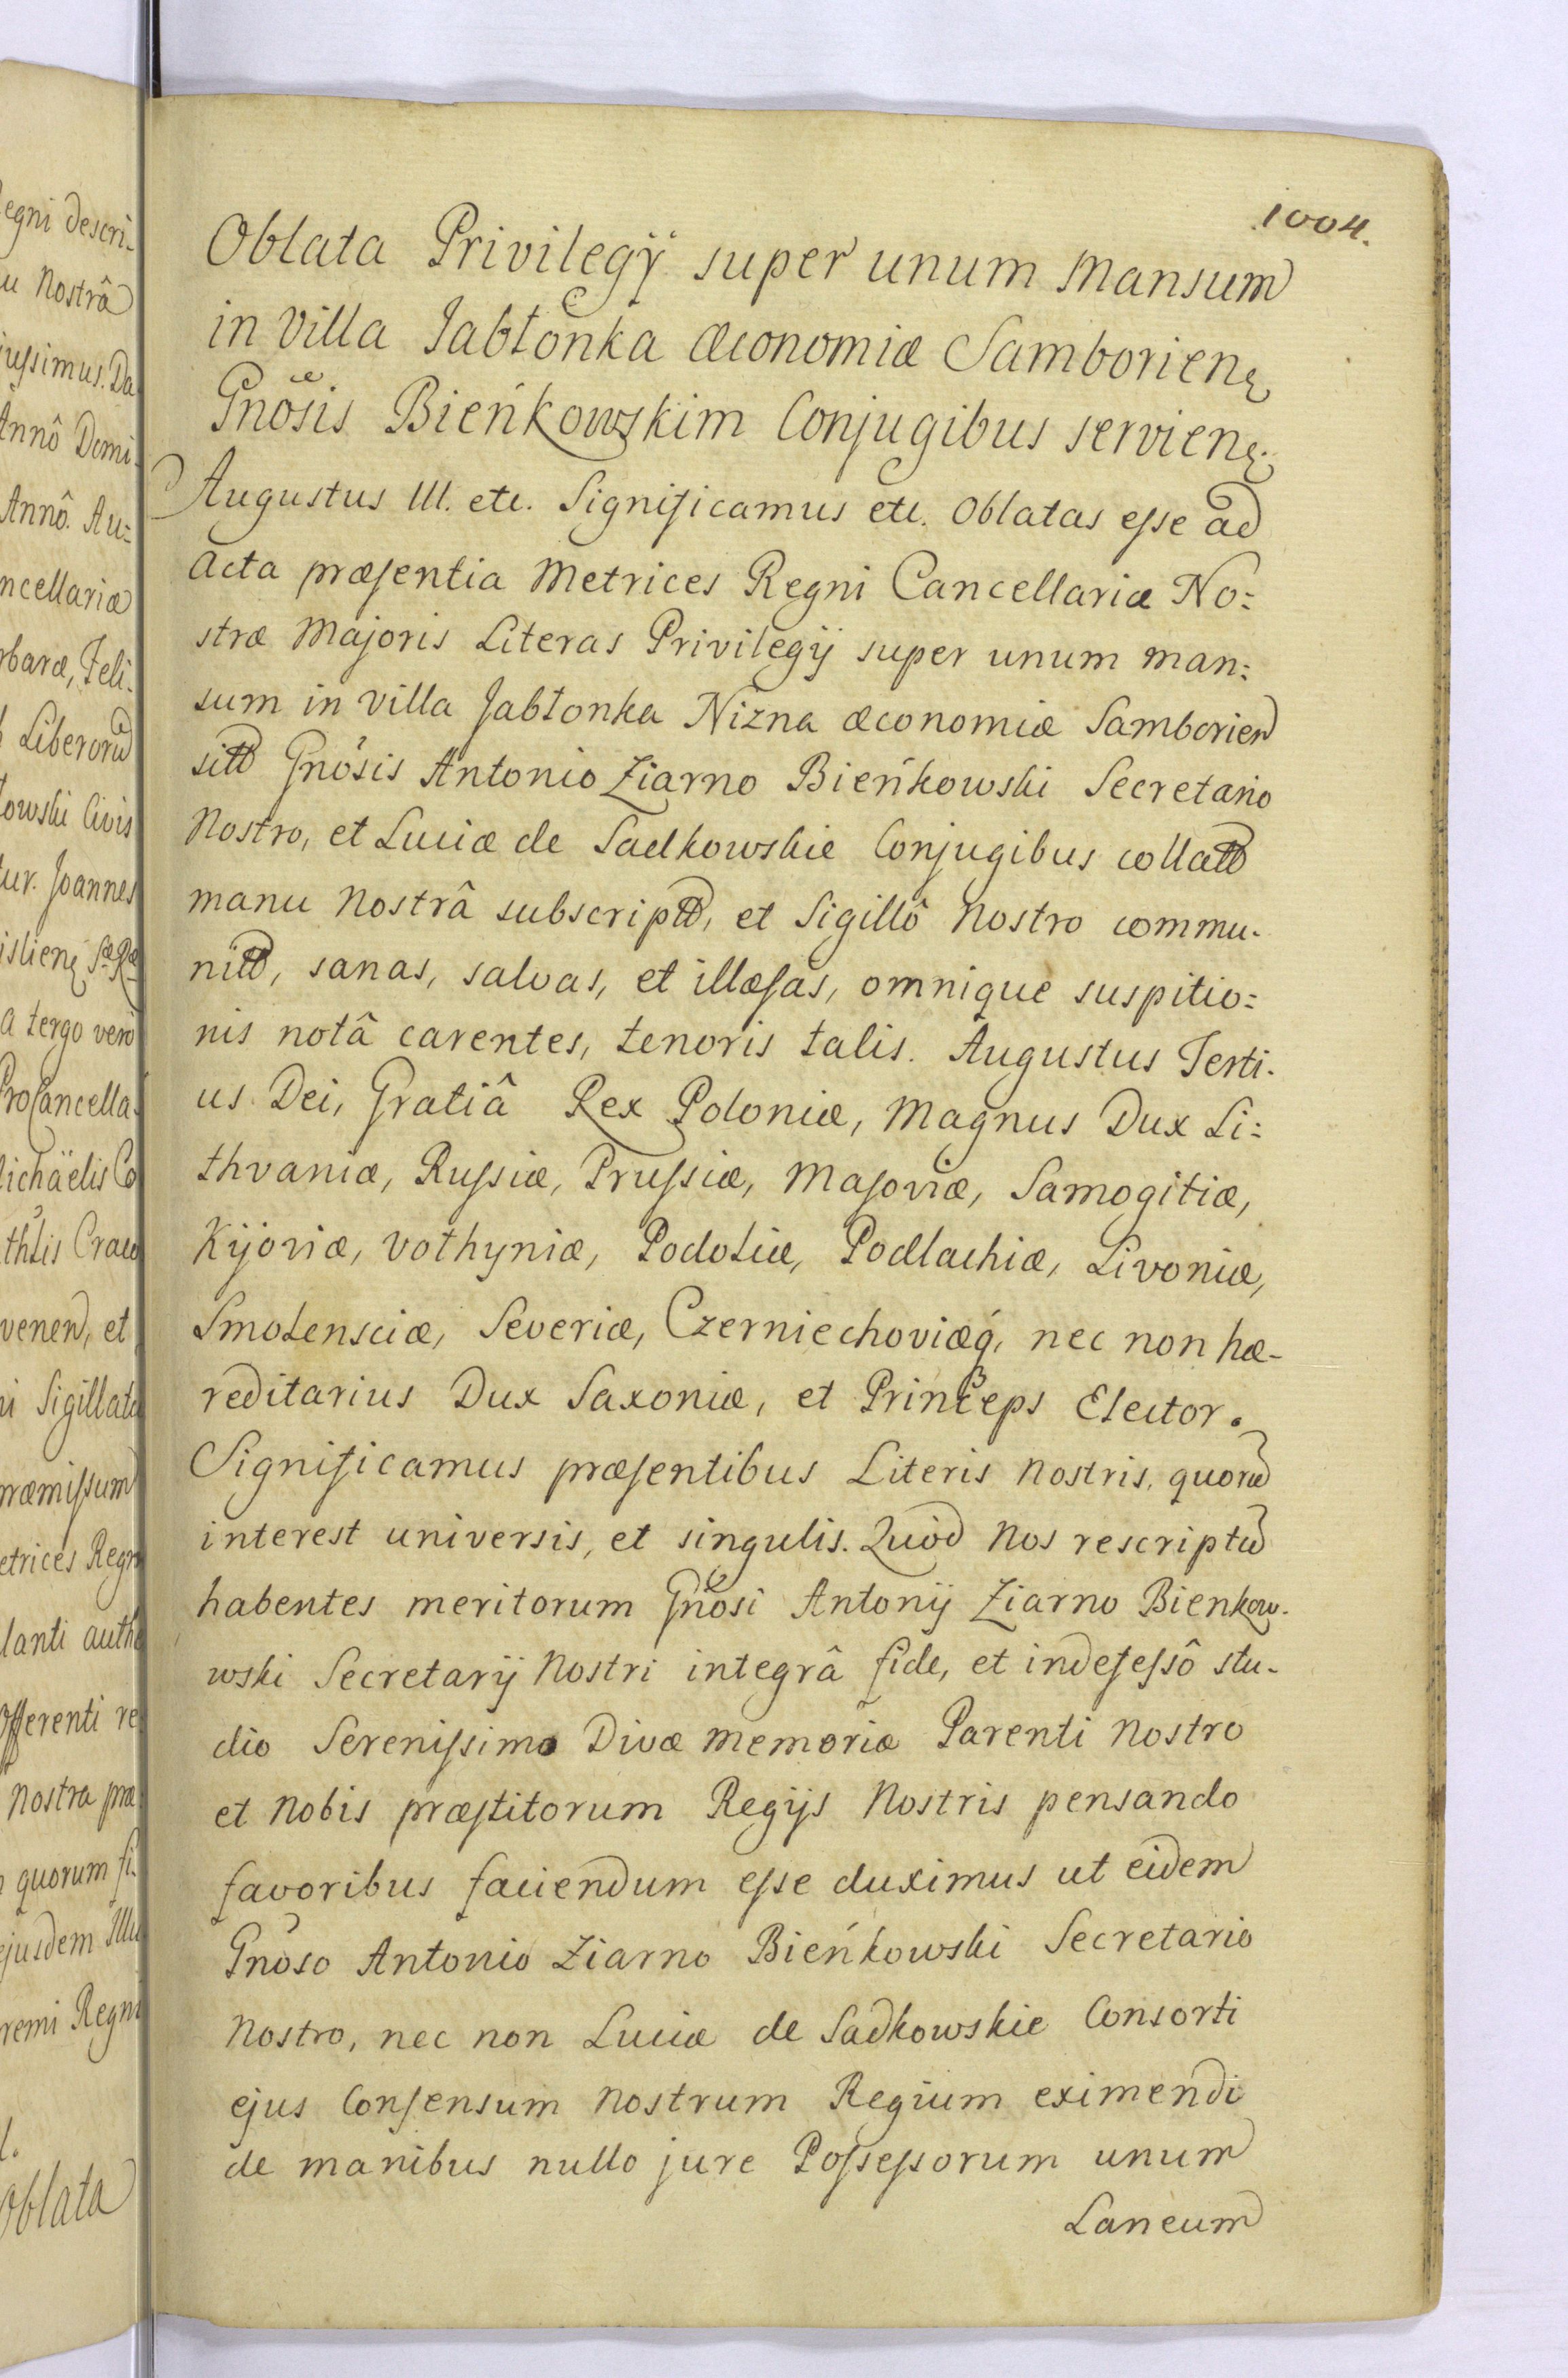 1004.
Oblata Privilegÿ super unum Mansum
in Villa Jabłonka Œconomiæ Samborienę
Gnösis Bieńkowskim Conjugibus servienę.
Augustus III. etc. Significamus etc. Oblatas esse ad
Acta præsentia Metrices Regni Cancellariæ No:
stræ Majoris Literas Privilegij super unum man:
sum in Villa Jabłonka Niżna œconomiæ Samborien
sitt Gnosis Antonio Ziarno Bieńkowski Secretario
Nostro, et Luciæ de Sadkowskie Conjugibus collatt
manu Nostrâ subscriptt, et Sigillô Nostro commu-
nitt, sanas, salvas, et illæsas, omnique suspitio:
nis notâ carentes, tenoris talis. Augustus Terti-
us Dei, Gratiâ Rex Poloniæ, Magnus Dux Li:
thvaniæ, Russiæ, Prussiæ, Masoviæ, Samogitiæ,
Kijoviæ, Vołhyniæ, Podoliæ, Podlachiæ, Livoniæ,
Smolensciæ, Severiæ, Czerniechoviæq́, nec non hæ-
reditarius Dux Saxoniæ, et Princeps Elector.
Significamus præsentibus Literis Nostris, quorũ
interest universis, et singulis. Quòd Nos rescriptũ
habentes meritorum Gnösi Antonij Ziarno Bienkow-
wski Secretarij Nostri integrâ fide, et indefessô stu-
dio Serenissimo Divæ Memoriæ Parenti Nostro
et Nobis præstitorum Regijs Nostris pensando
favoribus faciendum esse duximus ut eidem
Gnoso Antonio Ziarno Bieńkowski Secretario
Nostro, nec non Luciæ de Sadkowskie Consorti
ejus Consensum Nostrum Regium eximendi
de manibus nullo jure Possessorum unum
Laneum
egni descri-
u Nostrâ
iussimus. Da
Annô Domi-
Annô. Au:
ncellariæ
rbaræ, Feli-
Liberorũ
kowski Civis
ur. Joannes
islienę
a tergo verò
ProCancella-
ichäelis Co
venen, et
ni Sigillata
ræmissum
etrices Regn
lanti auth
Offerenti re
Nostra præ
quorum fi-
ejusdem Illu
remi Regni
l.
Oblata